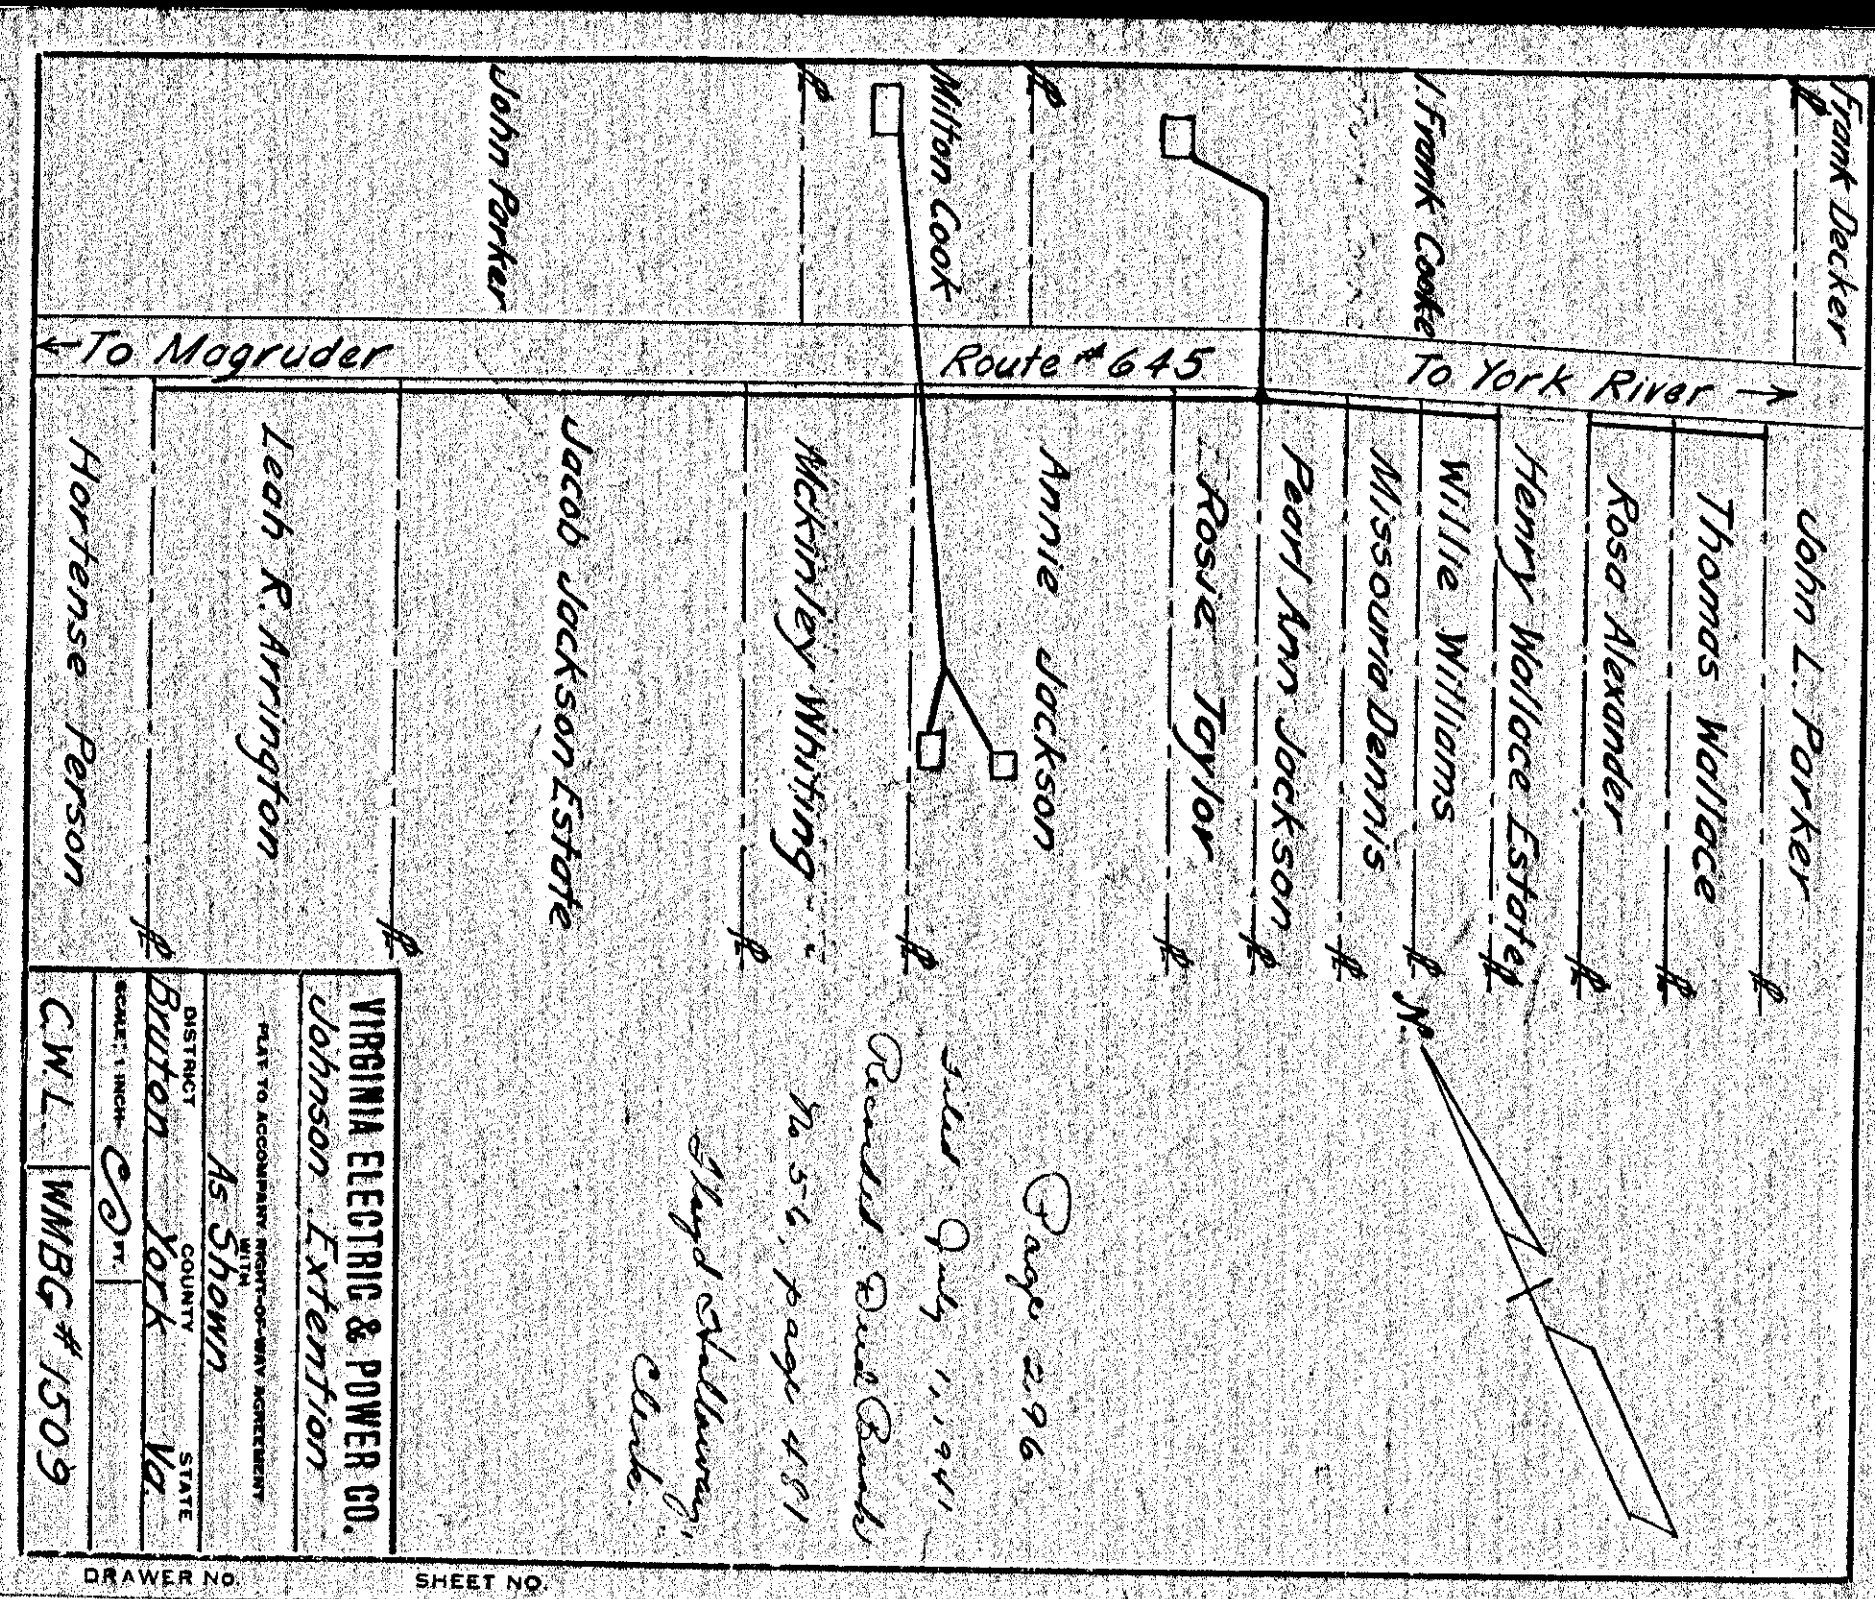 Frank Decker
J. Frank Cooke
Milton Cook
John Parker
← To Magruder
Route # 645
To York River →
John L. Parker
Thomas Wallace
Rosa Alexander
Henry Wallace Estate
Willie Williams
Missouria Dennis
Pearl Ann Jackson
Rosie Taylor
Annie Jackson
McKinley Whiting
Jacob Jackson Estate
Leah R. Arrington
Hortense Person
N.
Page 296
Filed July 1, 1941
Recorded Deed Book
No 56, page 481
Floyd Holloway,
Clerk.
VIRGINIA ELECTRIC & POWER CO.
Johnson Extention
PLAT TO ACCOMPANY RIGHT-OF-WAY AGREEMENT
WITH
As Shown
DISTRICT COUNTY STATE
Bruton York Va.
SCALE: 1 INCH= FT.
C.W.L. WMBG # 1509
DRAWER NO. SHEET NO.